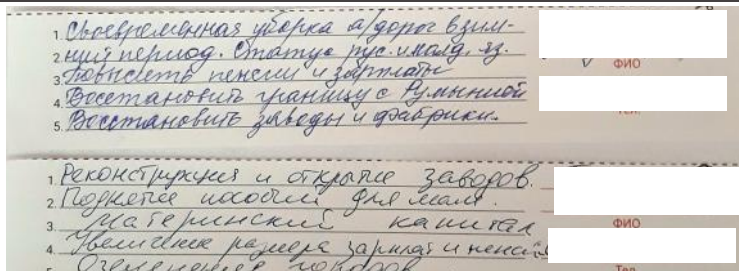 1. Своевременная уборка а/дорог в зим-
2. ний период. Статус рус. и молд. яз.
3. Повысить пенсии и зарплаты
4. Восстановить границу с Румынией
5. Восстановить заводы и фабрики.
ФИО
1. Реконструкция и открытие заводов.
2. Поднятие пособий для мам.
3. материнский капитал
ФИО
4. Увеличение размера зарплат и пенсий
Тел.